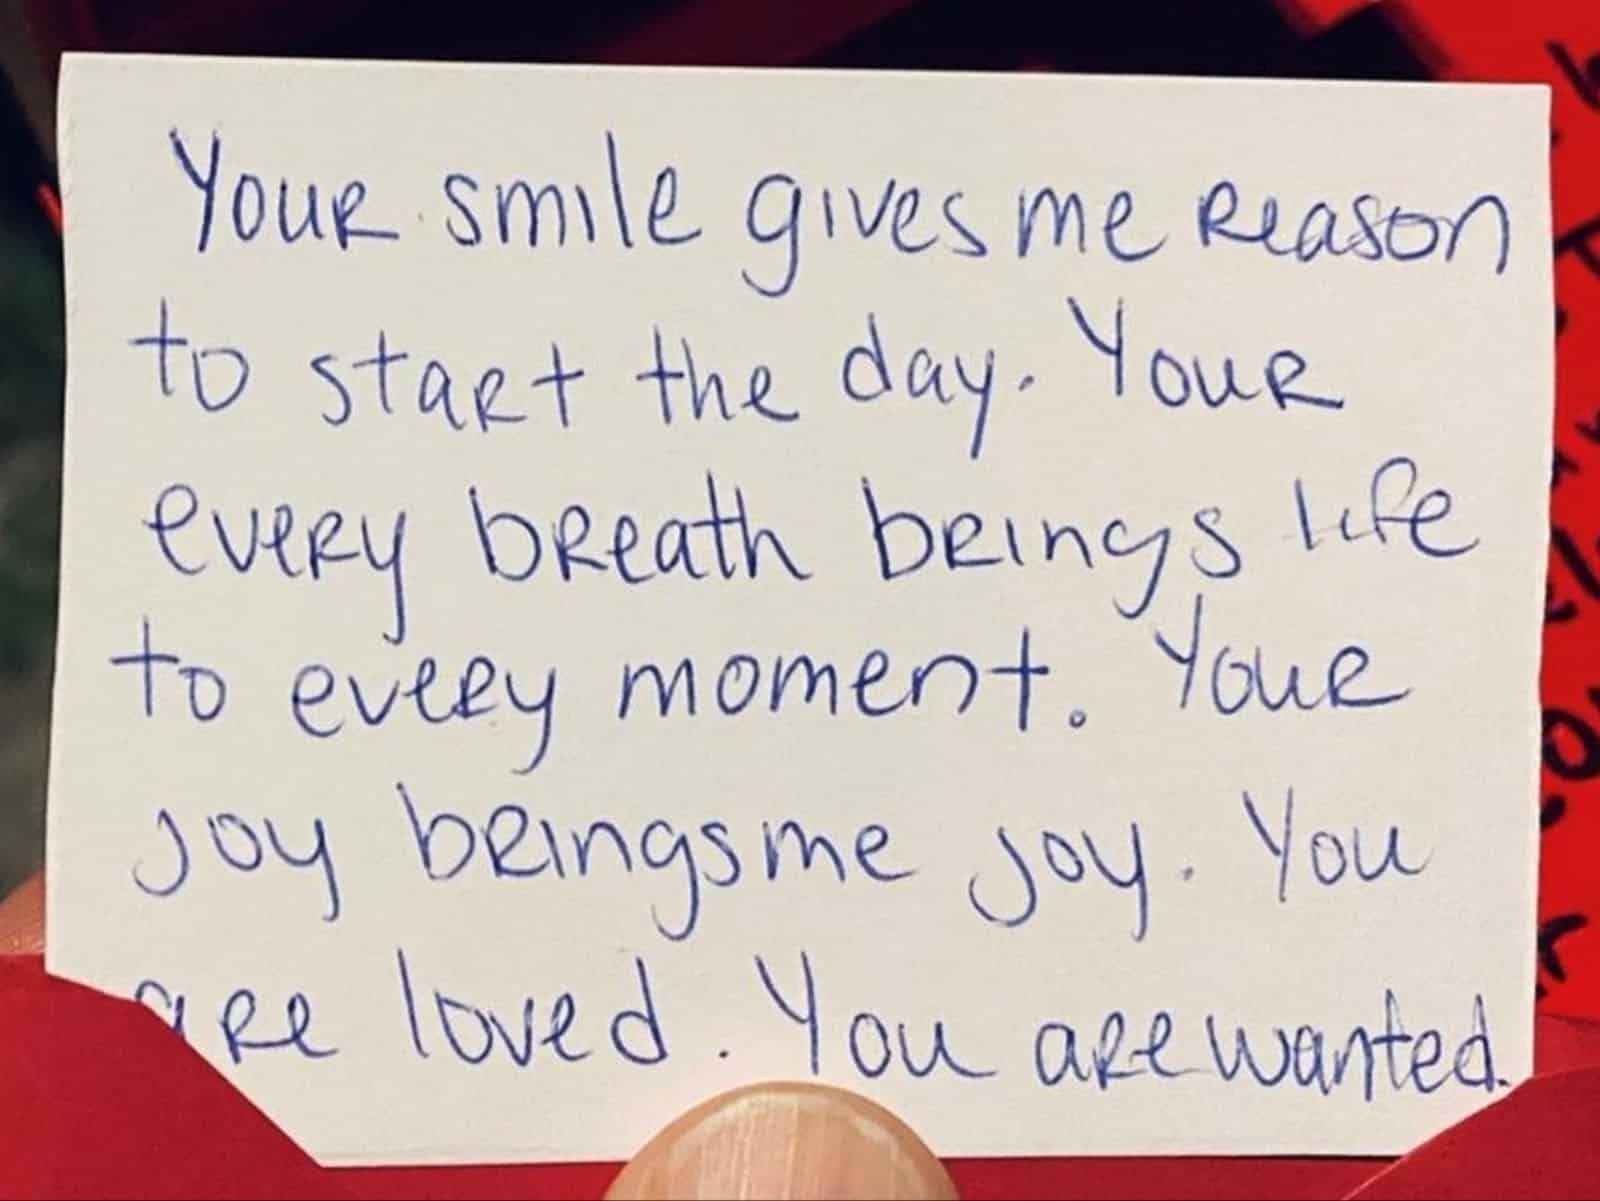 Your smile gives me reason
to start the day. Your
every breath brings life
to every moment. Your
joy brings me joy. You
are loved. You are wanted.